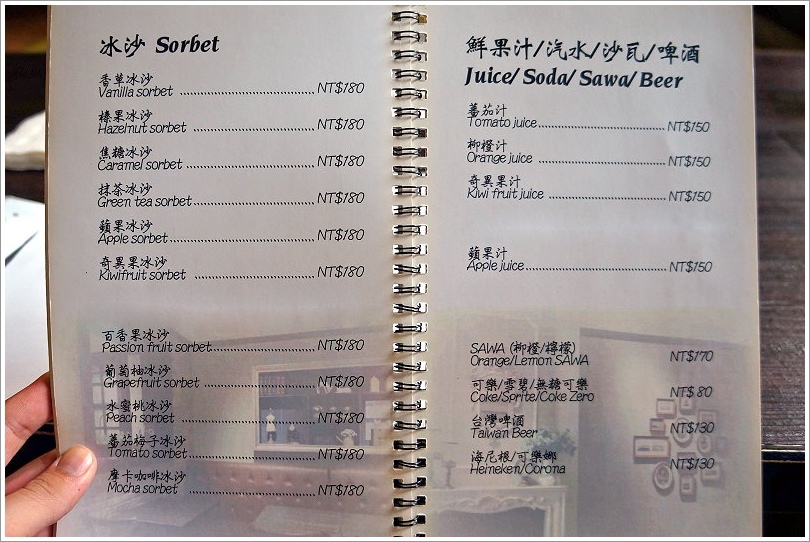 冰沙 Sorbet
香草冰沙
Vanilla sorbet NT$180
榛果冰沙
Hazelnut sorbet NT$180
焦糖冰沙
Caramel sorbet NT$180
抹茶冰沙
Green tea sorbet NT$180
蘋果冰沙
Apple sorbet NT$180
奇異果冰沙
Kiwifruit sorbet NT$180
百香果冰沙
Passion fruit sorbet NT$180
葡萄柚冰沙
Grapefruit sorbet NT$180
水蜜桃冰沙
Peach sorbet NT$180
蕃茄梅子冰沙
Tomato sorbet NT$180
摩卡咖啡冰沙
Mocha sorbet NT$180
鮮果汁/汽水/沙瓦/啤酒
Juice/ Soda/ Sawa/ Beer
蕃茄汁
Tomato juice NT$150
柳橙汁
Orange juice NT$150
奇異果汁
Kiwi fruit juice NT$150
蘋果汁
Apple juice NT$150
SAWA (柳橙/檸檬)
Orange/Lemon SAWA NT$170
可樂/雪碧/無糖可樂
Coke/Sprite/Coke Zero NT$ 80
台灣啤酒
Taiwan Beer NT$130
海尼根/可樂娜
Heineken/Corona NT$130